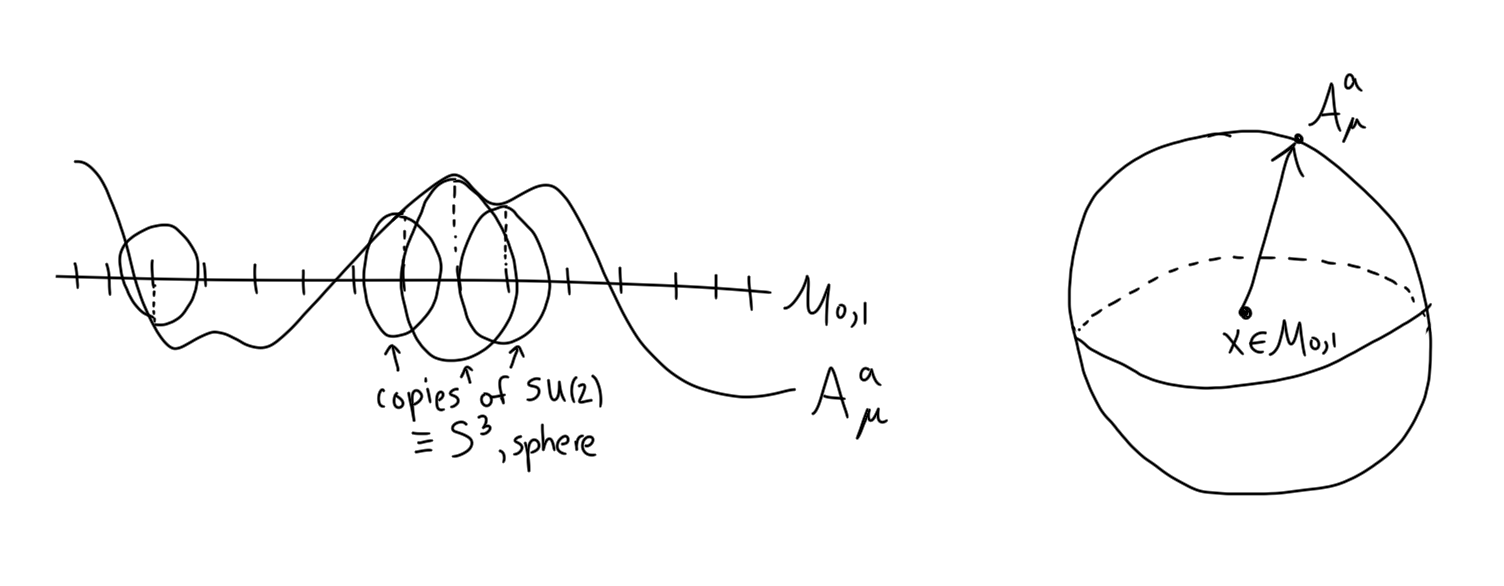 M₀,₁
Aᵃ_μ
copies of SU(2)
≡ S³, sphere
Aᵃ_μ
x∈M₀,₁